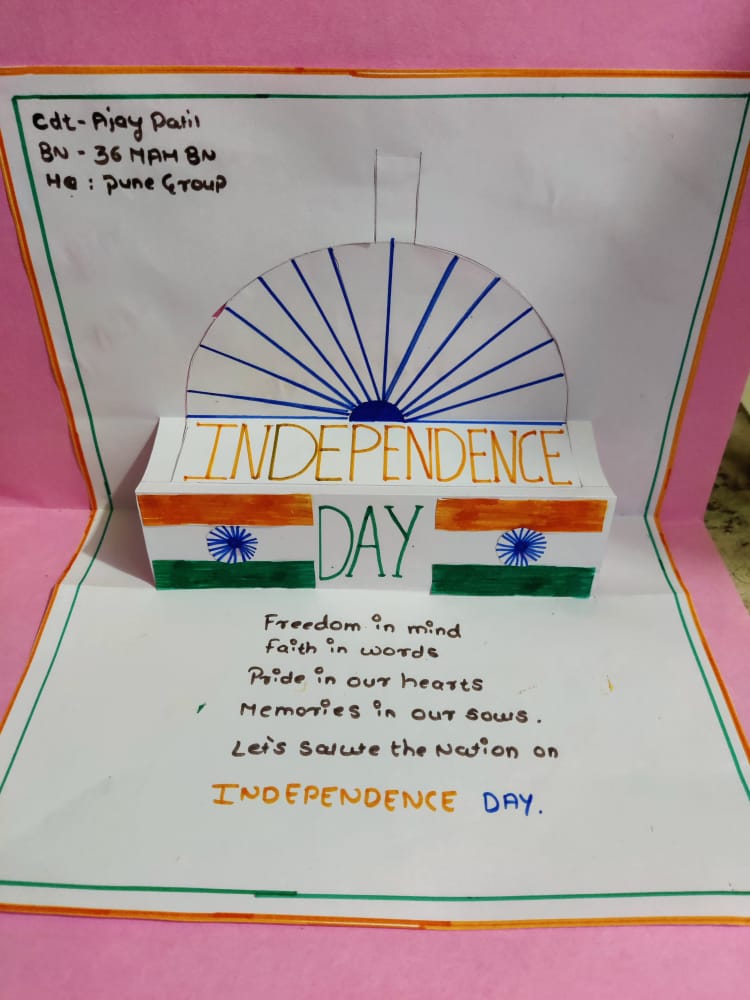 Cdt - Ajay Patil
BN - 36 MAH BN
HQ : Pune Group
INDEPENDENCE
DAY
Freedom in mind
Faith in words
Pride in our hearts
Memories in our sows.
Let's Salute the Nation on
INDEPENDENCE DAY.